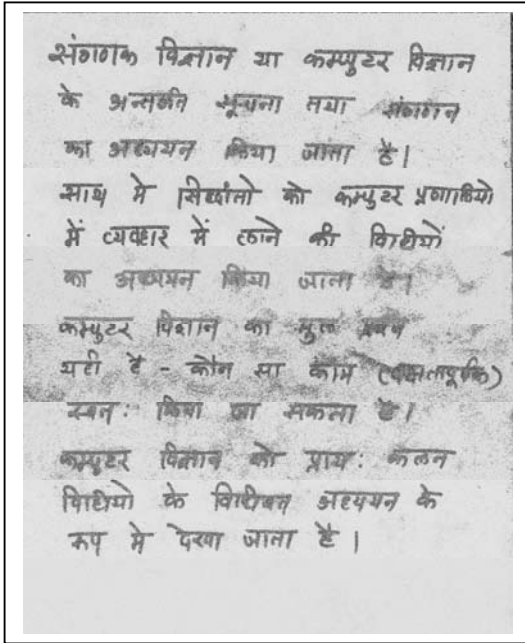 संगणक विज्ञान या कम्प्युटर विज्ञान
के अन्तर्गत सूचना तथा संगणन
का अध्ययन किया जाता है।
साथ मे सिध्दांतो को कम्प्युटर प्रणालियो
में व्यवहार में लाने की विधीयों
का अध्ययन किया जाता है।
कम्प्युटर विज्ञान का मुल प्रश्न
यही है - कौन सा काम (दक्षतापूर्वक)
स्वत: किया जा सकता है।
कम्प्युटर विज्ञान को प्राय: कलन
विधीयो के विधीवत अध्ययन के
रूप मे देखा जाता है।